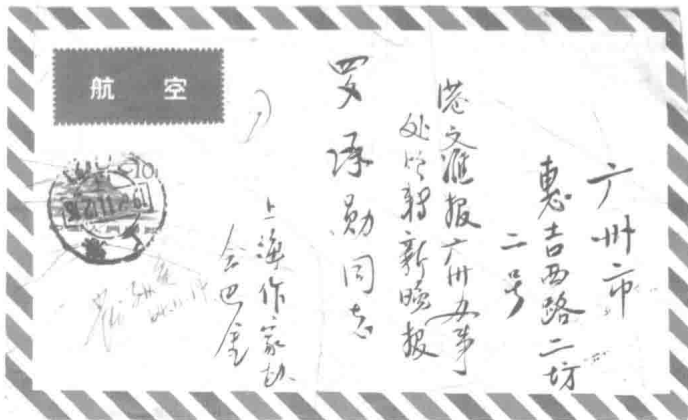 广州市
惠吉西路二坊
二号
港文汇报广州办事
处收转新晚报
罗承勋同志
上海作家协
会巴金
航空